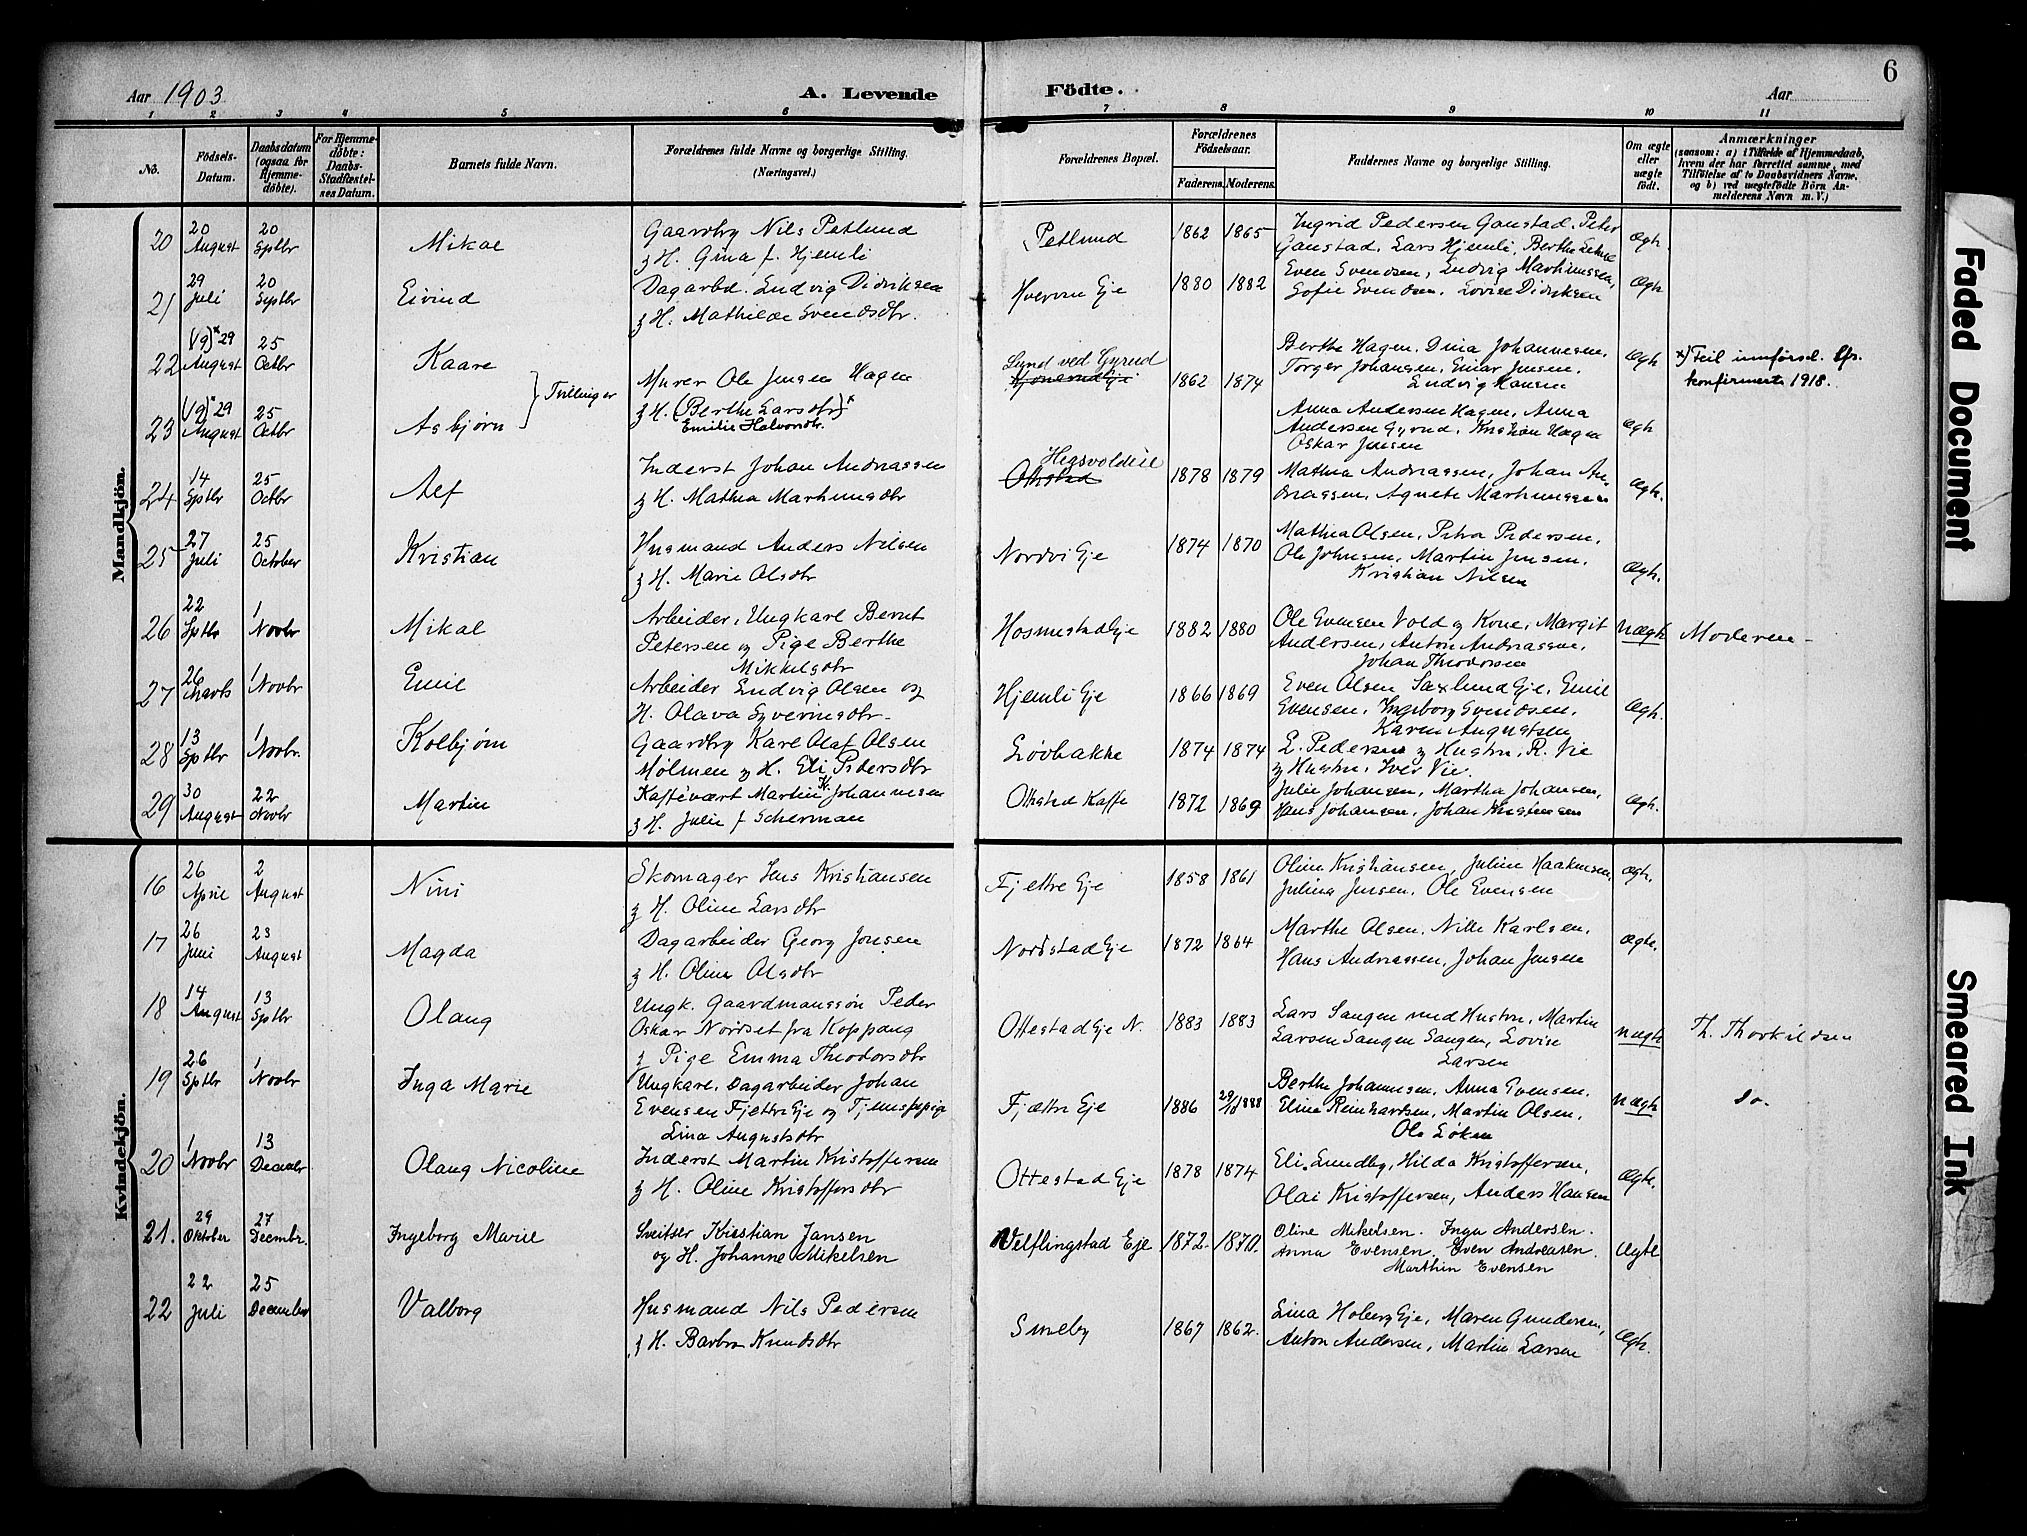 6
Aar 1903
A. Levende Födte.
Aar
1 2 3 4 5 6 7 8 9 10 11
No.
Födsels-
Datum.
Daabsdatum
(ogsaa for
Hjemme-
döbte).
For Hjemme-
döbte:
Daabs-
Stadfæstel-
ses Datum.
Barnets fulde Navn.
Forældrenes fulde Navne og borgerlige Stilling.
(Næringsvei.)
Forældrenes Bopæl.
Forældrenes
Födselsaar.
Faderens. Moderens.
Faddernes Navne og borgerlige Stilling.
Om ægte
eller
uægte
födt.
Anmærkninger
(saasom: a) i Tilfælde af Hjemmedaab,
hvem der har forrettet samme, med
Tilföielse af to Daabsvidners Navne,
og b) ved uægtefödte Börn An-
melderens Navn m. V.)
Mandkjön.
20
20 August
20 Sptbr
Mikal
Gaardbr Nils Petlund
& H. Gina f. Hjemli
Petlund
1862 1865
Ingrid Pedersen Gaustad, Peter
Gaustad, Lars Hjemli, Berthe
Ægt.
21
29 Juli
20 Septbr
Eivind
Dagarbd. Ludvig Didriksen
& H. Mathilde Svendsdtr.
Hverven Eje
1880 1882
Even Svendsen, Ludvig Marthinussen,
Sofie Svendsen, Lovise Didriksen
Ægt
22
(19)* 29 August
25 Octbr
Kaare
Tvillinger
Murer Ole Jensen Hagen
& H. (Berthe Larsdtr)*
Emilie Halvorsdtr.
Lund ved Gyrud
1862 1874
Berthe Hagen, Dina Johannesen,
Torger Johansen, Einar Jensen,
Ludvig Hansen
Ægt
*) Feil innførsel. Cfr.
konfirmerte 1918.
23
(19)* 29 August
25 Octbr
Asbjørn
Anna Andersen Hagen, Anna
Andersen Gyrud, Kristian Hagen
Oskar Jensen
Ægt
24
14 Sptbr
25 Octbr
Alf
Inderst Johan Andreassen
& H. Mathea Marthinusdtr
Hegsvoldeie
Ottestad
1878 1879
Mathea Andreassen, Johan An-
dreassen, Agnete Marthinussen
Ægt.
25
27 Juli
25 October
Kristian
Husmand Anders Nilsen
& H. Marie Olsdtr
Nordvi Eje
1874 1870
Mathea Olsen, Petra Pedersen,
Ole Johnsen, Martin Jensen,
Kristian Nilsen
Ægt.
26
22 Sptbr
1 Novbr
Mikal
Arbeider, Ungkarl Bernt
Petersen og Pige Berthe
Mikkelsdtr
Hosmestad Eje
1882 1880
Ole Evensen Vold og Kone, Margit
Andersen, Anton Andreassen,
Johan Theodorsen
Uægt
Moderen -
27
26 Marts
1 Novbr
Emil
Arbeider Ludvig Olsen og
H. Olava Syverinsdtr.
Hjemli Eje
1866 1869
Even Olsen Saxlund Eje, Emil
Evensen, Ingeborg Svendsen,
Karen Augustsen
Ægt.
28
13 Sptbr
1 Novbr.
Kolbjørn
Gaardbr Karl Olaf Olsen
Mølmen og H. Eli Pedersdtr
Løvbakke
1874 1874
L. Pedersen & Hustru, R. Vie
& Hustru, Iver Vie.
29
30 August
22 Novbr
Martin
Kaffevært Martin K. Johannesen
& H. Julie f Scherman
Ottestad Kaffe
1872 1869
Julie Johansen, Martha Johansen,
Hans Johansen, Johan Kristensen
Ægt.
Kvindekjön.
16
26 April
2 August
Nini
Skomager Jens Kristiansen
& H. Oline Larsdtr
Fjettre Eje
1858 1861
Oline Kristiansen, Juline Haakensen,
Julina Jensen, Ole Evensen
Ægt.
17
26 Juni
23 August
Magda
Dagarbeider Georg Jensen
& H. Oline Olsdtr
Nordstad Eje
1872 1864
Marthe Olsen, Nille Karlsen,
Hans Andreassen, Johan Jensen
Ægte.
18
14 August
13 Sptbr
Olaug
Ungk. Gaardmanssøn Peder
Oskar Nordset fra Koppang
& Pige Emma Theodorsdtr
Ottestad Eje N.
1883 1883
Lars Sangen med Hustru, Martin
Larsen Sangen Sangen, Lovise
Larsen
Uægt
Th. Thorkildsen
19
26 Sptbr
1 Novbr
Inga Marie
Ungkarl, Dagarbeider Johan
Evensen Fjettre Eje og Tjenstepige
Lina Augustsdtr
Fjettre Eje
1886 1888
Berthe Johannesen, Anna Evensen,
Eline Reinhardsen, Martin Olsen,
Ole Løken
Uægt
do-
20
1 Novbr
13 Decembr
Olaug Nicoline
Inderst Martin Kristoffersen
& H. Oline Kristoffersdtr
Ottestad Eje
1878 1874
Eli Lundby, Hilda Kristoffersen,
Olai Kristoffersen, Anders Hansen
Ægte.
21.
29 Oktober
27 Decembr.
Ingeborg Marie
Sveitser Kristian Jansen
og H. Johanne Mikelsen
Velflingstad Eje
1872. 1870.
Oline Mikelsen. Inga Andersen.
Anna Evensen. Even Andreasen.
Marthin Evensen
Ægte
22
22 Juli
25 December
Valborg
Husmand Nils Pedersen
& H. Barbra Knudsdtr
Smeby
1867 1862.
Lina Hoberg Eje, Maren Gundersen,
Anton Andersen, Martin Larsen
Ægt.
Faded Document
Smeared Ink